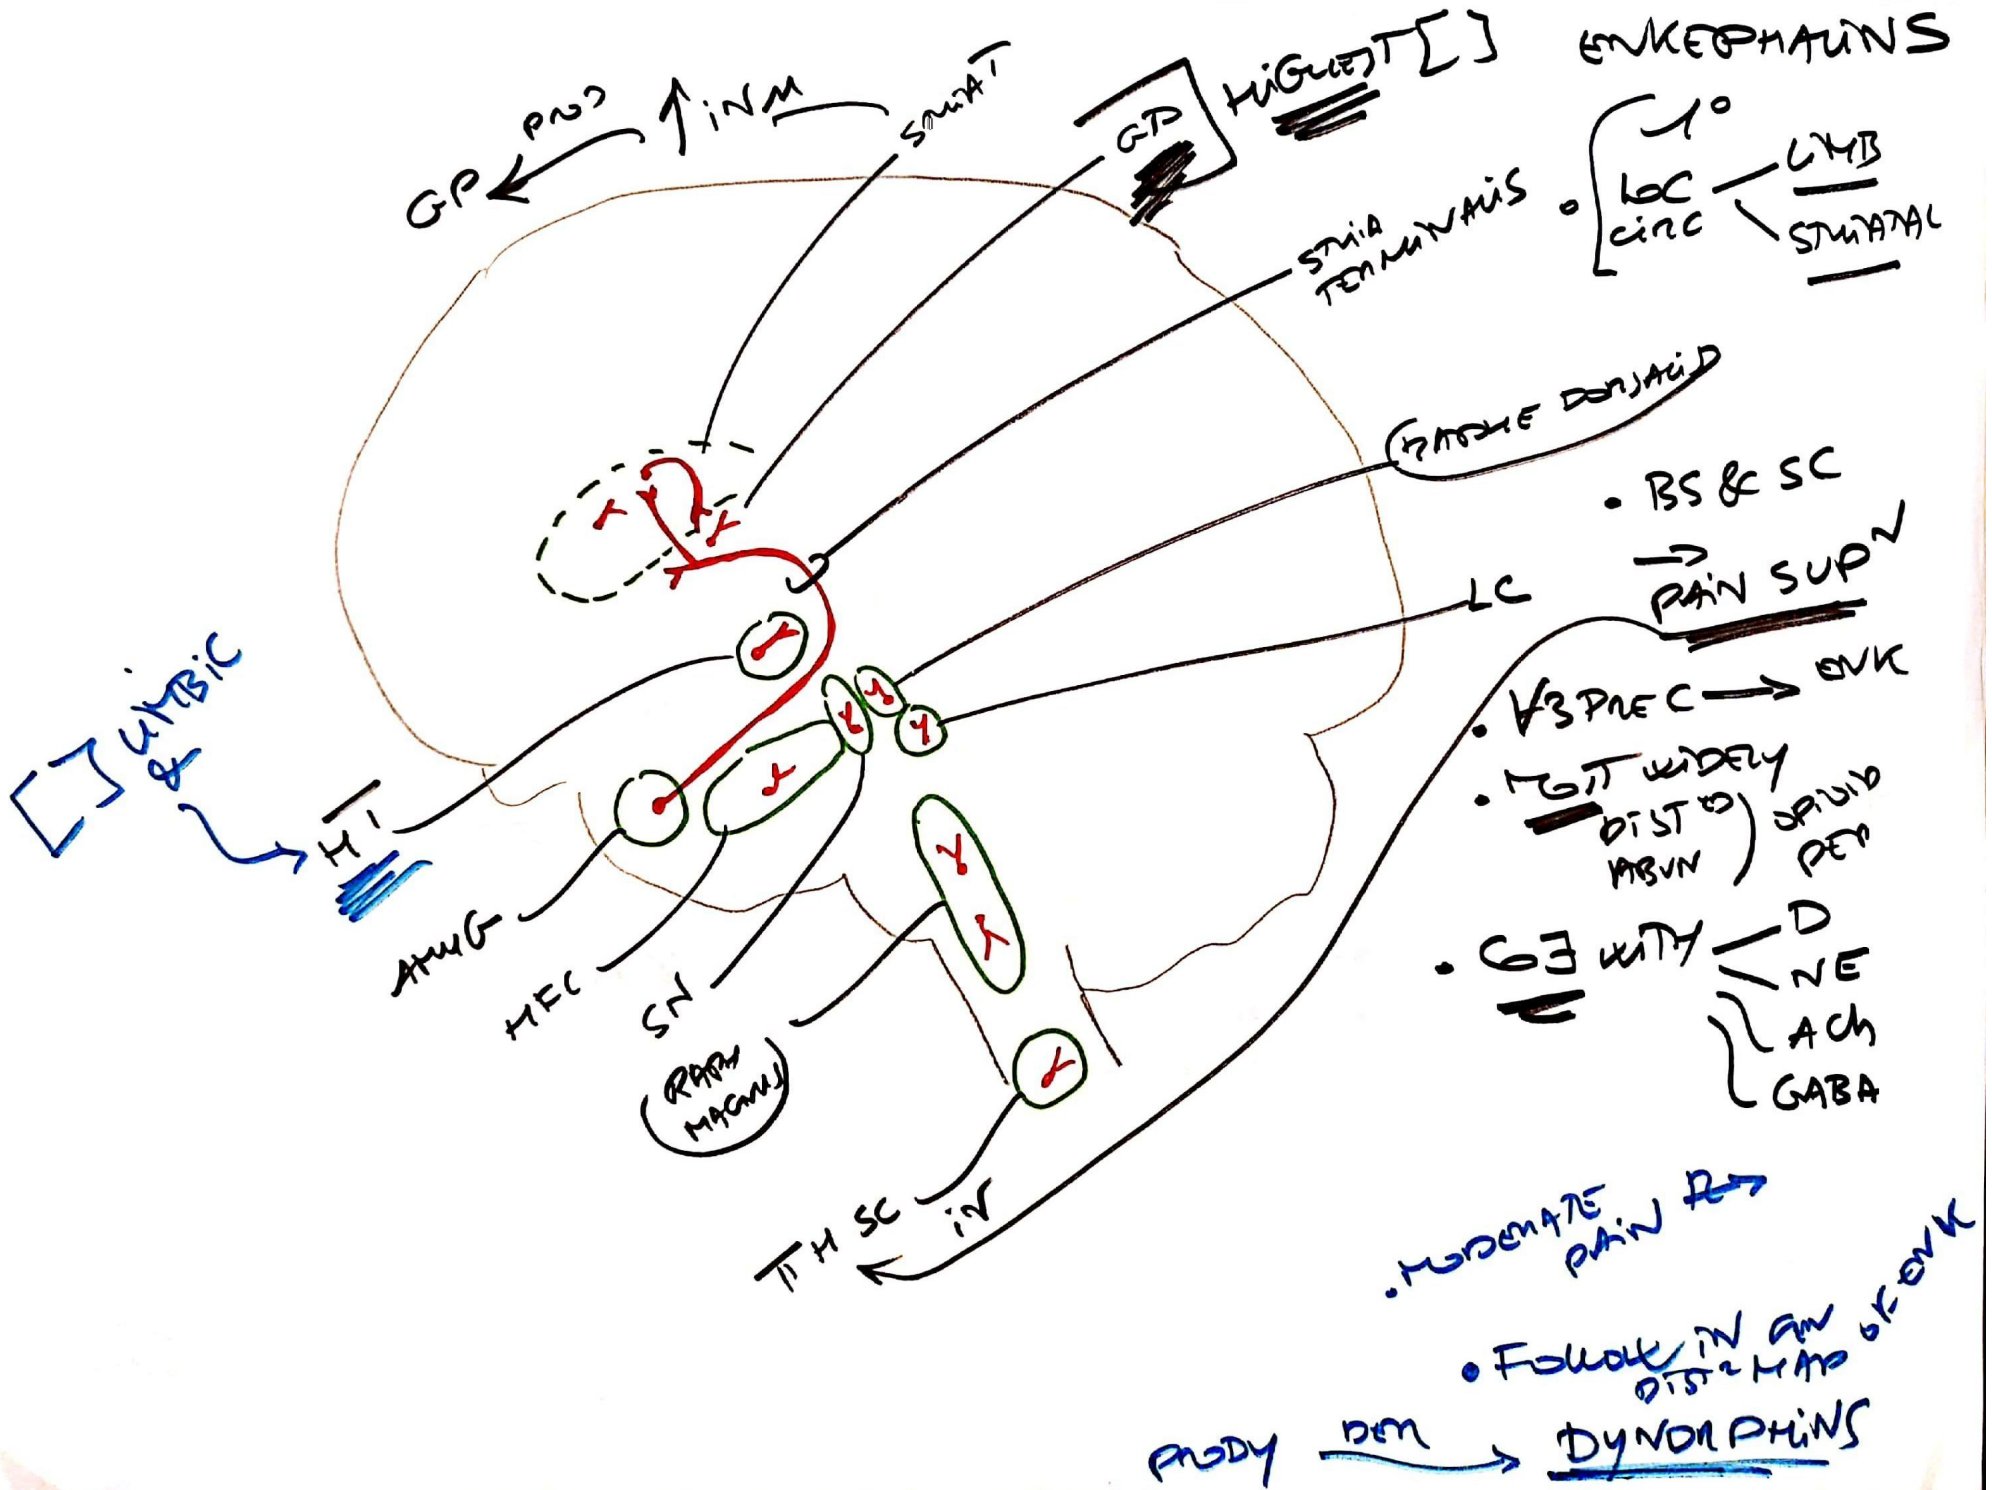 ENKEPHALINS
HIGHEST []
GP
STRIAT
↑ INN
PROJ
GP
1°
LOC
CIRC
LIMB
STRIATAL
STRIA
TERMINALIS
RAPHE DORSALIS
• BS & SC
→
PAIN SUPN
LC
• ∀3 PREC → ENK
• MOST WIDELY
DISTD
ABUN
OPIOID
PEP
• CO∃ WITH
D
NE
ACh
GABA
[] LIMBIC
&
HT
AMYG
HFC
SN
RAPH
MAGNUS
TH SC
IN
• MODERATE
PAIN R→
• FOLLOW IN GN
DISTN MAP
OF ENK
PRODY DER → DYNORPHINS